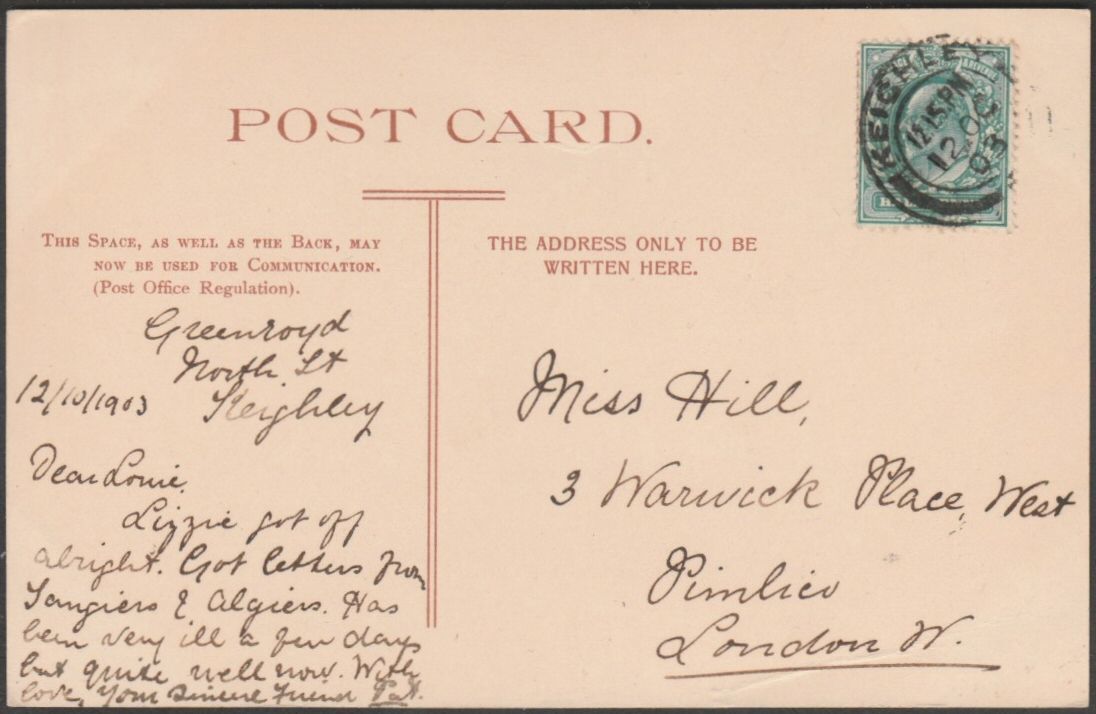 POST CARD.
THIS SPACE, AS WELL AS THE BACK, MAY
NOW BE USED FOR COMMUNICATION.
(Post Office Regulation).
THE ADDRESS ONLY TO BE
WRITTEN HERE.
KEIGHLEY
12.15 PM
12 OC
03
Greenroyd
North St
12/10/1903 Keighley
Dear Louie,
Lizzie got off
alright. Got letters from
Tangiers & Algiers. Has
been very ill a few days
but quite well now. With
love, Your Sincere Friend Pat.
Miss Hill,
3 Warwick Place, West
Pimlico
London W.